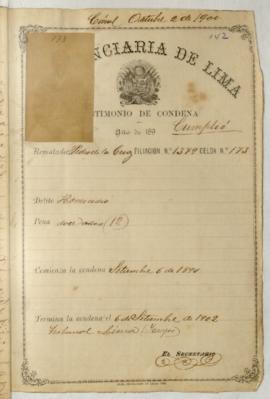 Octubre 2 de 1900
142
173
NCIARIA DE LIMA
TIMONIO DE CONDENA
Año de 189
Cumplió
Rematado de la Cruz FILIACION N.º 1372 CELDA N.º 173
Delito Homicidio
Pena doce (12)
Comienza la condena Setiembre 6 de
Termina la condena el 6 de Setiembre de 1902
Tribunal
EL SECRETARIO